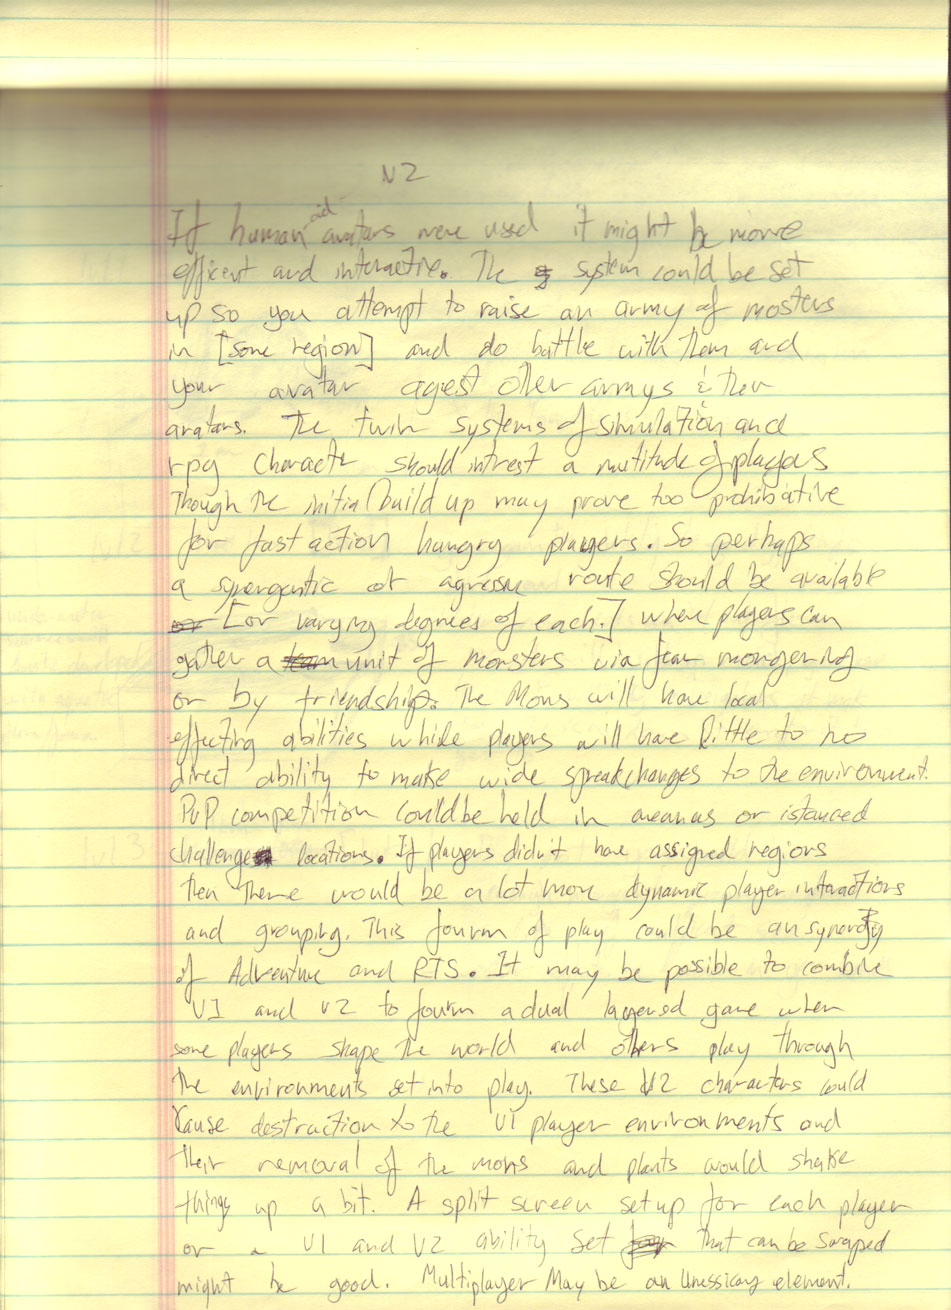 V2
If humanoid avatars were used it might be more
efficent and interactive. The system could be set
up so you attempt to raise an army of mosters
in [some region] and do battle with them and
your avatar agest other armys & their
avatars. The twin systems of simulation and
rpg character should intrest a multitude of players
Though the initial build up may prove too prohibative
for fast action hungry players. So perhaps
a synergentic or agresive route should be available
[or varying degrees of each.] where players can
gather a unit of monsters via fear mongering
or by friendship. The Mons will have local
effecting abilities while players will have little to no
direct ability to make wide spread changes to the environment.
PvP competition could be held in areanas or istanced
challenge locations. If players didn't have assigned regions
then there would be a lot more dynamic player interactions
and grouping. This fourm of play could be an synergy
of Adventure and RTS. It may be possible to combine
V1 and V2 to fourm a dual layered game when
some players shape the world and others play through
the environments set into play. These V2 characters could
cause destruction to the V1 player environments and
their removal of the mons and plants would shake
things up a bit. A split screen set up for each player
or a V1 and V2 ability set that can be swaped
might be good. Multiplayer May be an Unessicary element.